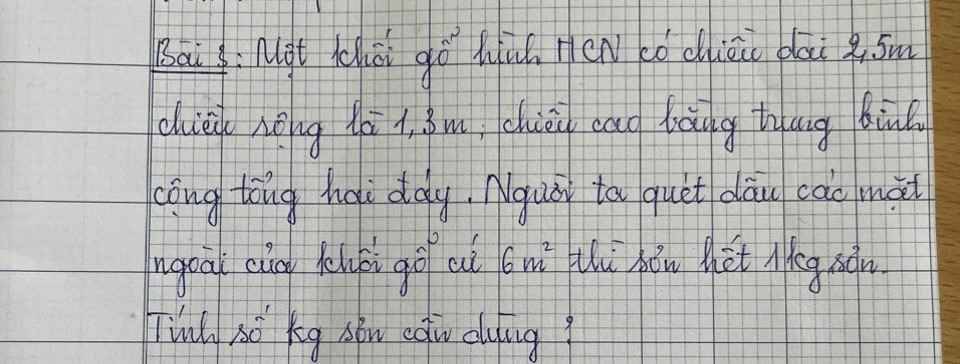 Bài 3: Một khối gỗ hình HCN có chiều dài 2,5m
chiều rộng là 1,3m, chiều cao bằng trung bình
cộng tổng hai đáy. Người ta quét dầu các mặt
ngoài của khối gỗ cứ 6m² thì sơn hết 1kg sơn.
Tính số kg sơn cần dùng?